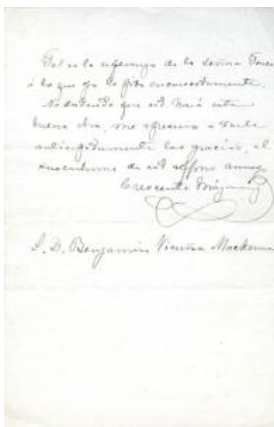 Tal es la esperanza de la Señora Torres
á lo que yo le pido encarecidamente.
No dudando que ud hará esta
buena obra, me apresuro a darle
anticipadamente las gracias, el
suscribirme de ud affmo amigo
Crescente Márquez
S. D. Benjamin Vicuña Mackenna